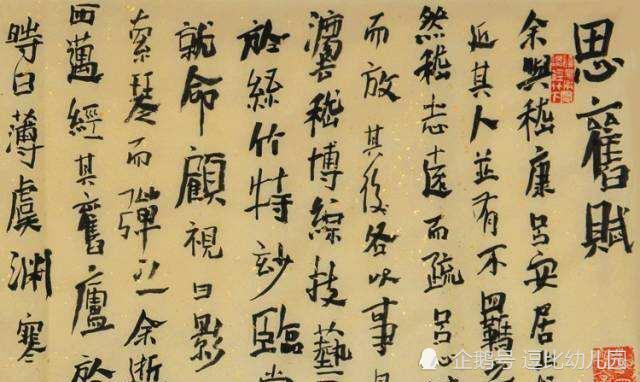 思舊賦
余與嵇康呂安居
近其人並有不羈
然嵇志遠而疏呂心
而放其後各以事見
灋嵇博綜技藝
於絲竹特玅臨當
就命顧視日影
索琴而彈之余逝
西邁經其舊廬於
時日薄虞淵寒
企鹅号 逗比幼儿园